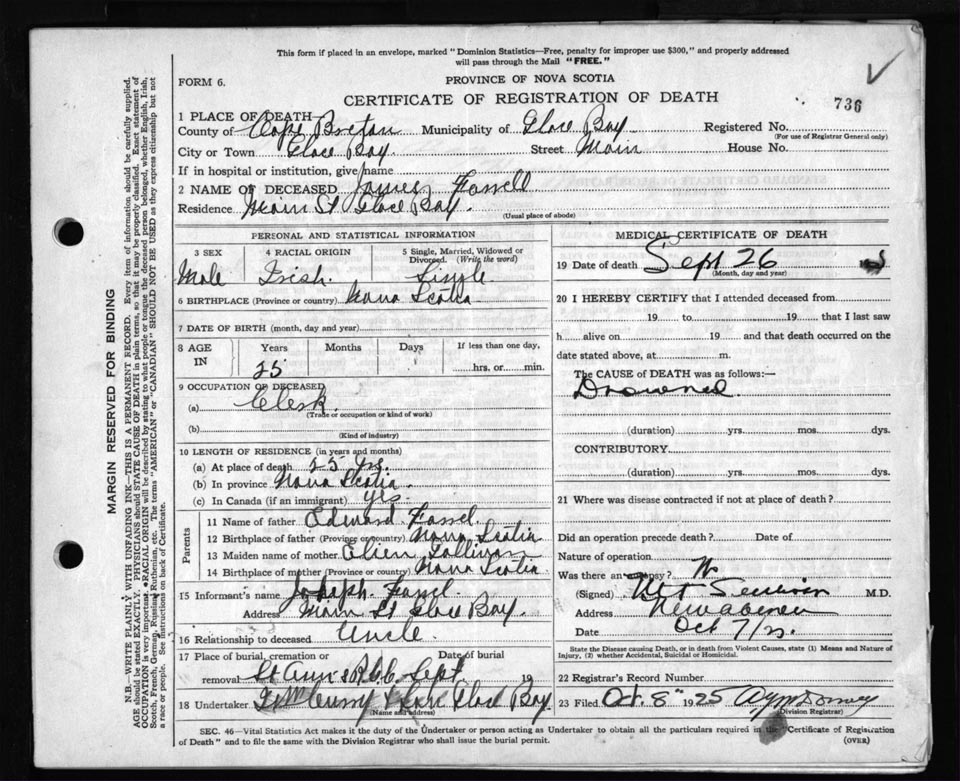 This form if placed in an envelope, marked "Dominion Statistics—Free, penalty for improper use $300," and properly addressed
will pass through the Mail "FREE."
FORM 6.
PROVINCE OF NOVA SCOTIA
CERTIFICATE OF REGISTRATION OF DEATH
736
1 PLACE OF DEATH
County of Cape Breton Municipality of Glace Bay Registered No.
(For use of Registrar General only)
City or Town Glace Bay Street Main House No.
If in hospital or institution, give name
2 NAME OF DECEASED James Farrell
Residence Main St Glace Bay
(Usual place of abode)
PERSONAL AND STATISTICAL INFORMATION
3 SEX 4 RACIAL ORIGIN 5 Single, Married, Widowed or
Divorced. (Write the word)
Male Irish Single
6 BIRTHPLACE (Province or country) Nova Scotia
7 DATE OF BIRTH (month, day and year)
8 AGE Years Months Days If less than one day,
IN 25 hrs. or min.
9 OCCUPATION OF DECEASED
(a) Clerk
(Trade or occupation or kind of work)
(b)
(Kind of industry)
10 LENGTH OF RESIDENCE (in years and months)
(a) At place of death 25 yrs.
(b) In province Nova Scotia
(c) In Canada (if an immigrant) yes
Parents
11 Name of father Edward
12 Birthplace of father (Province or country) Nova Scotia
13 Maiden name of mother
14 Birthplace of mother (Province or country) Nova Scotia
15 Informant's name Joseph
Address Main St Glace Bay
16 Relationship to deceased Uncle
17 Place of burial, cremation or Date of burial
removal St Anns Sept 19
18 Undertaker Glace Bay
(Name and address)
MEDICAL CERTIFICATE OF DEATH
19 Date of death Sept 26
(Month, day and year)
20 I HEREBY CERTIFY that I attended deceased from
19 to 19 that I last saw
h alive on 19 and that death occurred on the
date stated above, at m.
The CAUSE of DEATH was as follows:—
Drowned
(duration) yrs. mos. dys.
CONTRIBUTORY
(duration) yrs. mos. dys.
21 Where was disease contracted if not at place of death?
Did an operation precede death? Date of
Nature of operation
Was there an autopsy? No
(Signed) M.D.
Address
Date Oct 7/25
State the Disease causing Death, or in death from Violent Causes, state (1) Means and Nature of
Injury, (2) whether Accidental, Suicidal or Homicidal.
22 Registrar's Record Number
23 Filed Oct. 8th 1925
(Division Registrar)
SEC. 46—Vital Statistics Act makes it the duty of the Undertaker or person acting as Undertaker to obtain all the particulars required in the "Certificate of Registration
of Death" and to file the same with the Division Registrar who shall issue the burial permit. (OVER)
MARGIN RESERVED FOR BINDING
N.B.—WRITE PLAINLY WITH UNFADING INK—THIS IS A PERMANENT RECORD. Every item of information should be carefully supplied.
AGE should be stated EXACTLY. PHYSICIANS should STATE CAUSE OF DEATH in plain terms, so that it may be properly classified. Exact statement of
OCCUPATION is very important. •RACIAL ORIGIN will be described by stating to what people or tongue the deceased person belonged, whether English, Irish,
Scotch, French, German, Russian, Ruthenian, etc. The terms "AMERICAN" or "CANADIAN" SHOULD NOT BE USED as they express citizenship but not
a race or people. See instructions on back of Certificate.